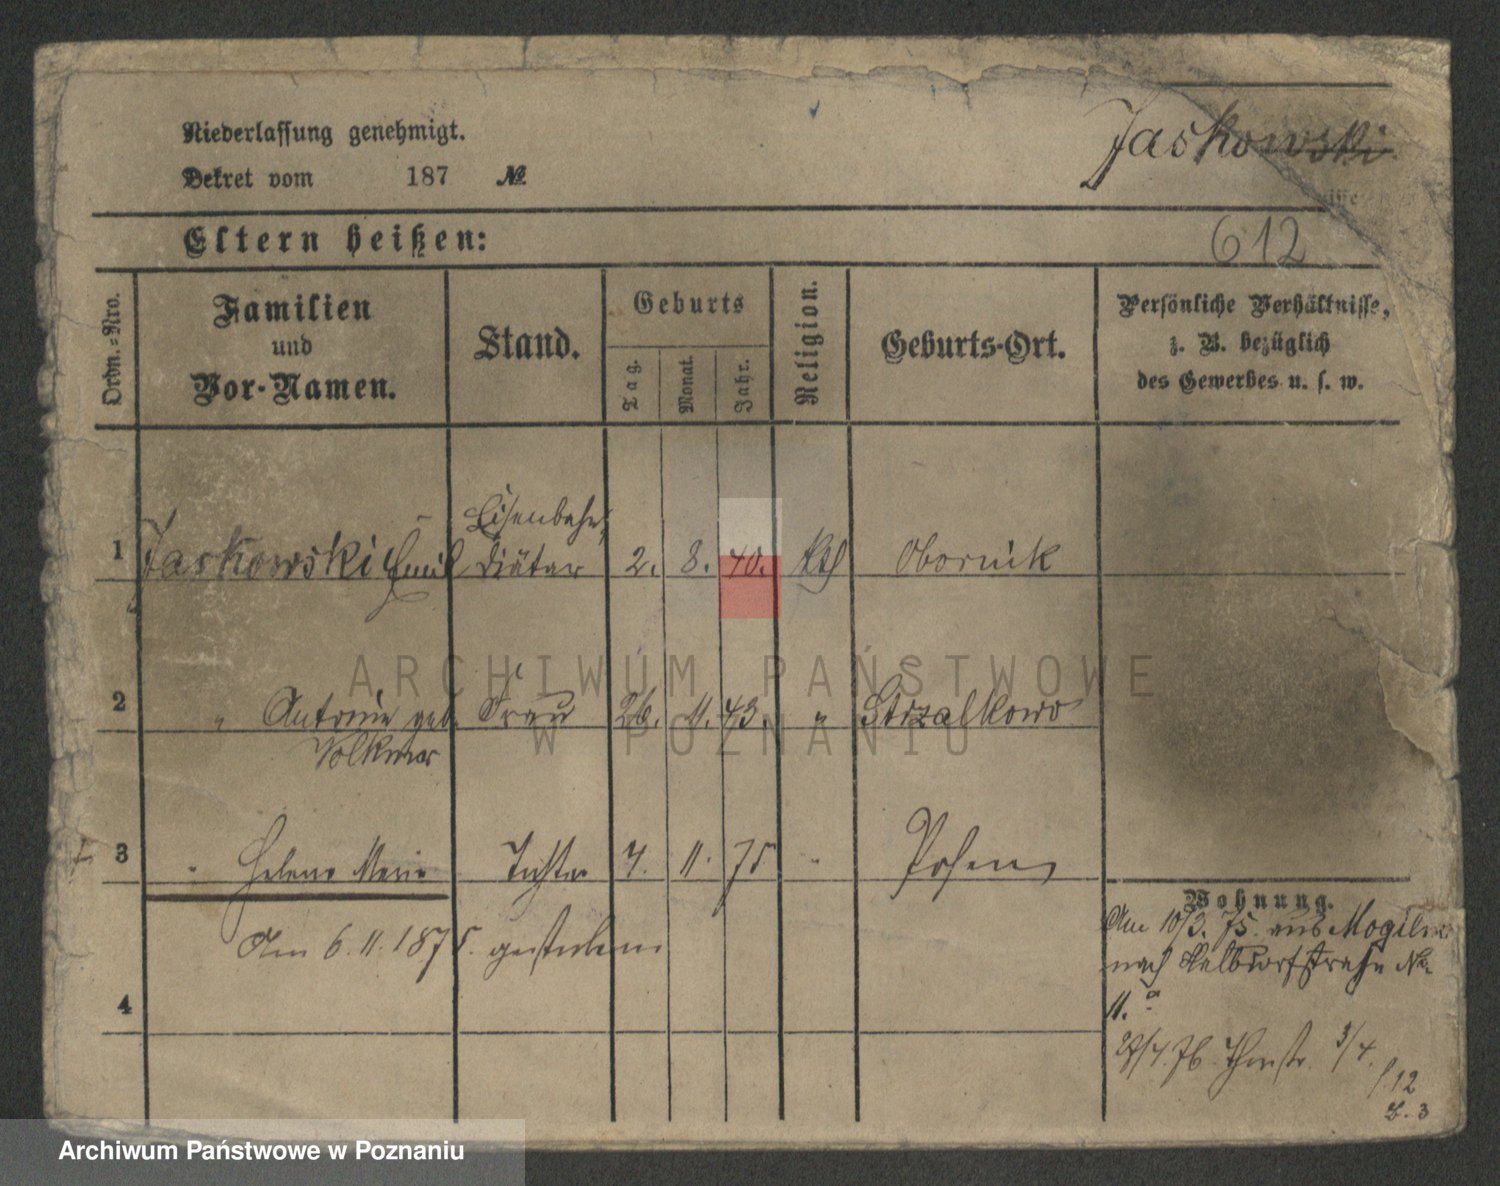 Niederlassung genehmigt.
Dekret vom 187 №
Jaskowski
612
Eltern heißen:
Ordn.-Nro.
Familien
und
Vor-Namen.
Stand.
Geburts
Tag.
Monat.
Jahr.
Religion.
Geburts-Ort.
Persönliche Verhältnisse,
z. B. bezüglich
des Gewerbes u. s. w.
Eisenbahn
1 Jaskowski Emil Diätar 2. 8. 40. kth Obornik
2 " Antonie geb. Frau 26. 11. 43. " Strzalkowo
Volkmar
3 " Helene Marie Tochter 4. 11. 75 " Posen
Am 6.11.1875. gestorben
4
Wohnung.
Am 10/3. 75. aus Mogilno
nach Halbdorfstraße No
11.a
Thorstr. 3/4.
12
ARCHIWUM PAŃSTWOWE
W POZNANIU
Archiwum Państwowe w Poznaniu